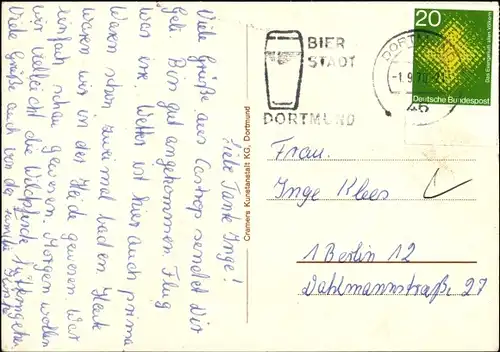 Liebe Tante Inge!
Viele Grüße aus Castrop sendet Dir
Gabi. Bin gut angekommen. Flug
war irre. Wetter ist hier auch prima
Waren schon zweimal baden. Heute
waren wir in der Heide gewesen. War
einfach schau gewesen. Morgen wollen
wir vielleicht die Wildpferde
Viele Grüße auch von der Familie
Cramers Kunstanstalt KG, Dortmund
BIER
STADT
DORTMUND
DORTMUND
-1.9.70-21
46
20
Deutsche Bundespost
Frau.
Inge Klees
1 Berlin 12
Dahlmannstraße 27